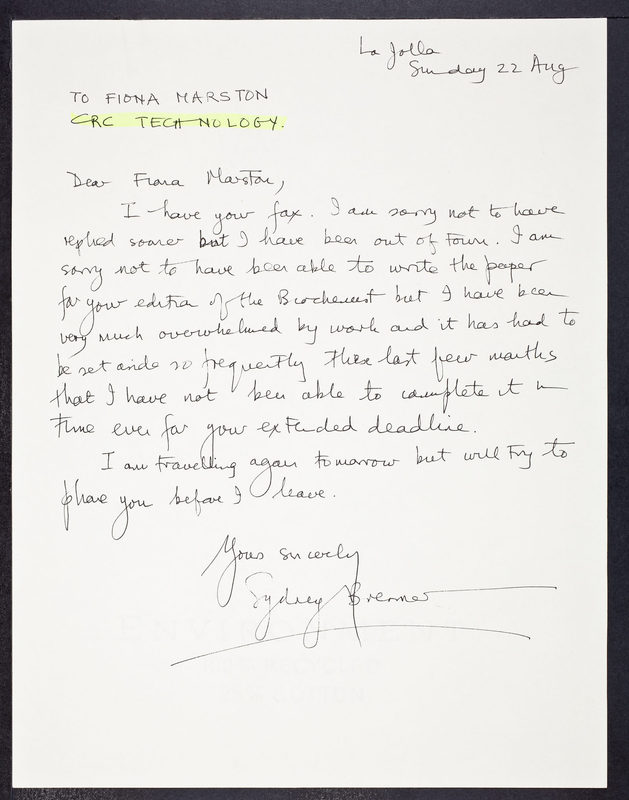 La Jolla
Sunday 22 Aug
TO FIONA MARSTON
CRC TECHNOLOGY.
Dear Fiona Marston,
I have your fax. I am sorry not to have
replied sooner but I have been out of town. I am
sorry not to have been able to write the paper
for your edition of the Biochemist but I have been
very much overwhelmed by work and it has had to
be set aside so frequently these last few months
that I have not been able to complete it in
time even for your extended deadline.
I am travelling again tomorrow but will try to
phone you before I leave.
Yours sincerely
Sydney Brenner
ENVIRONMENT
100% RECYCLED
25% COTTON